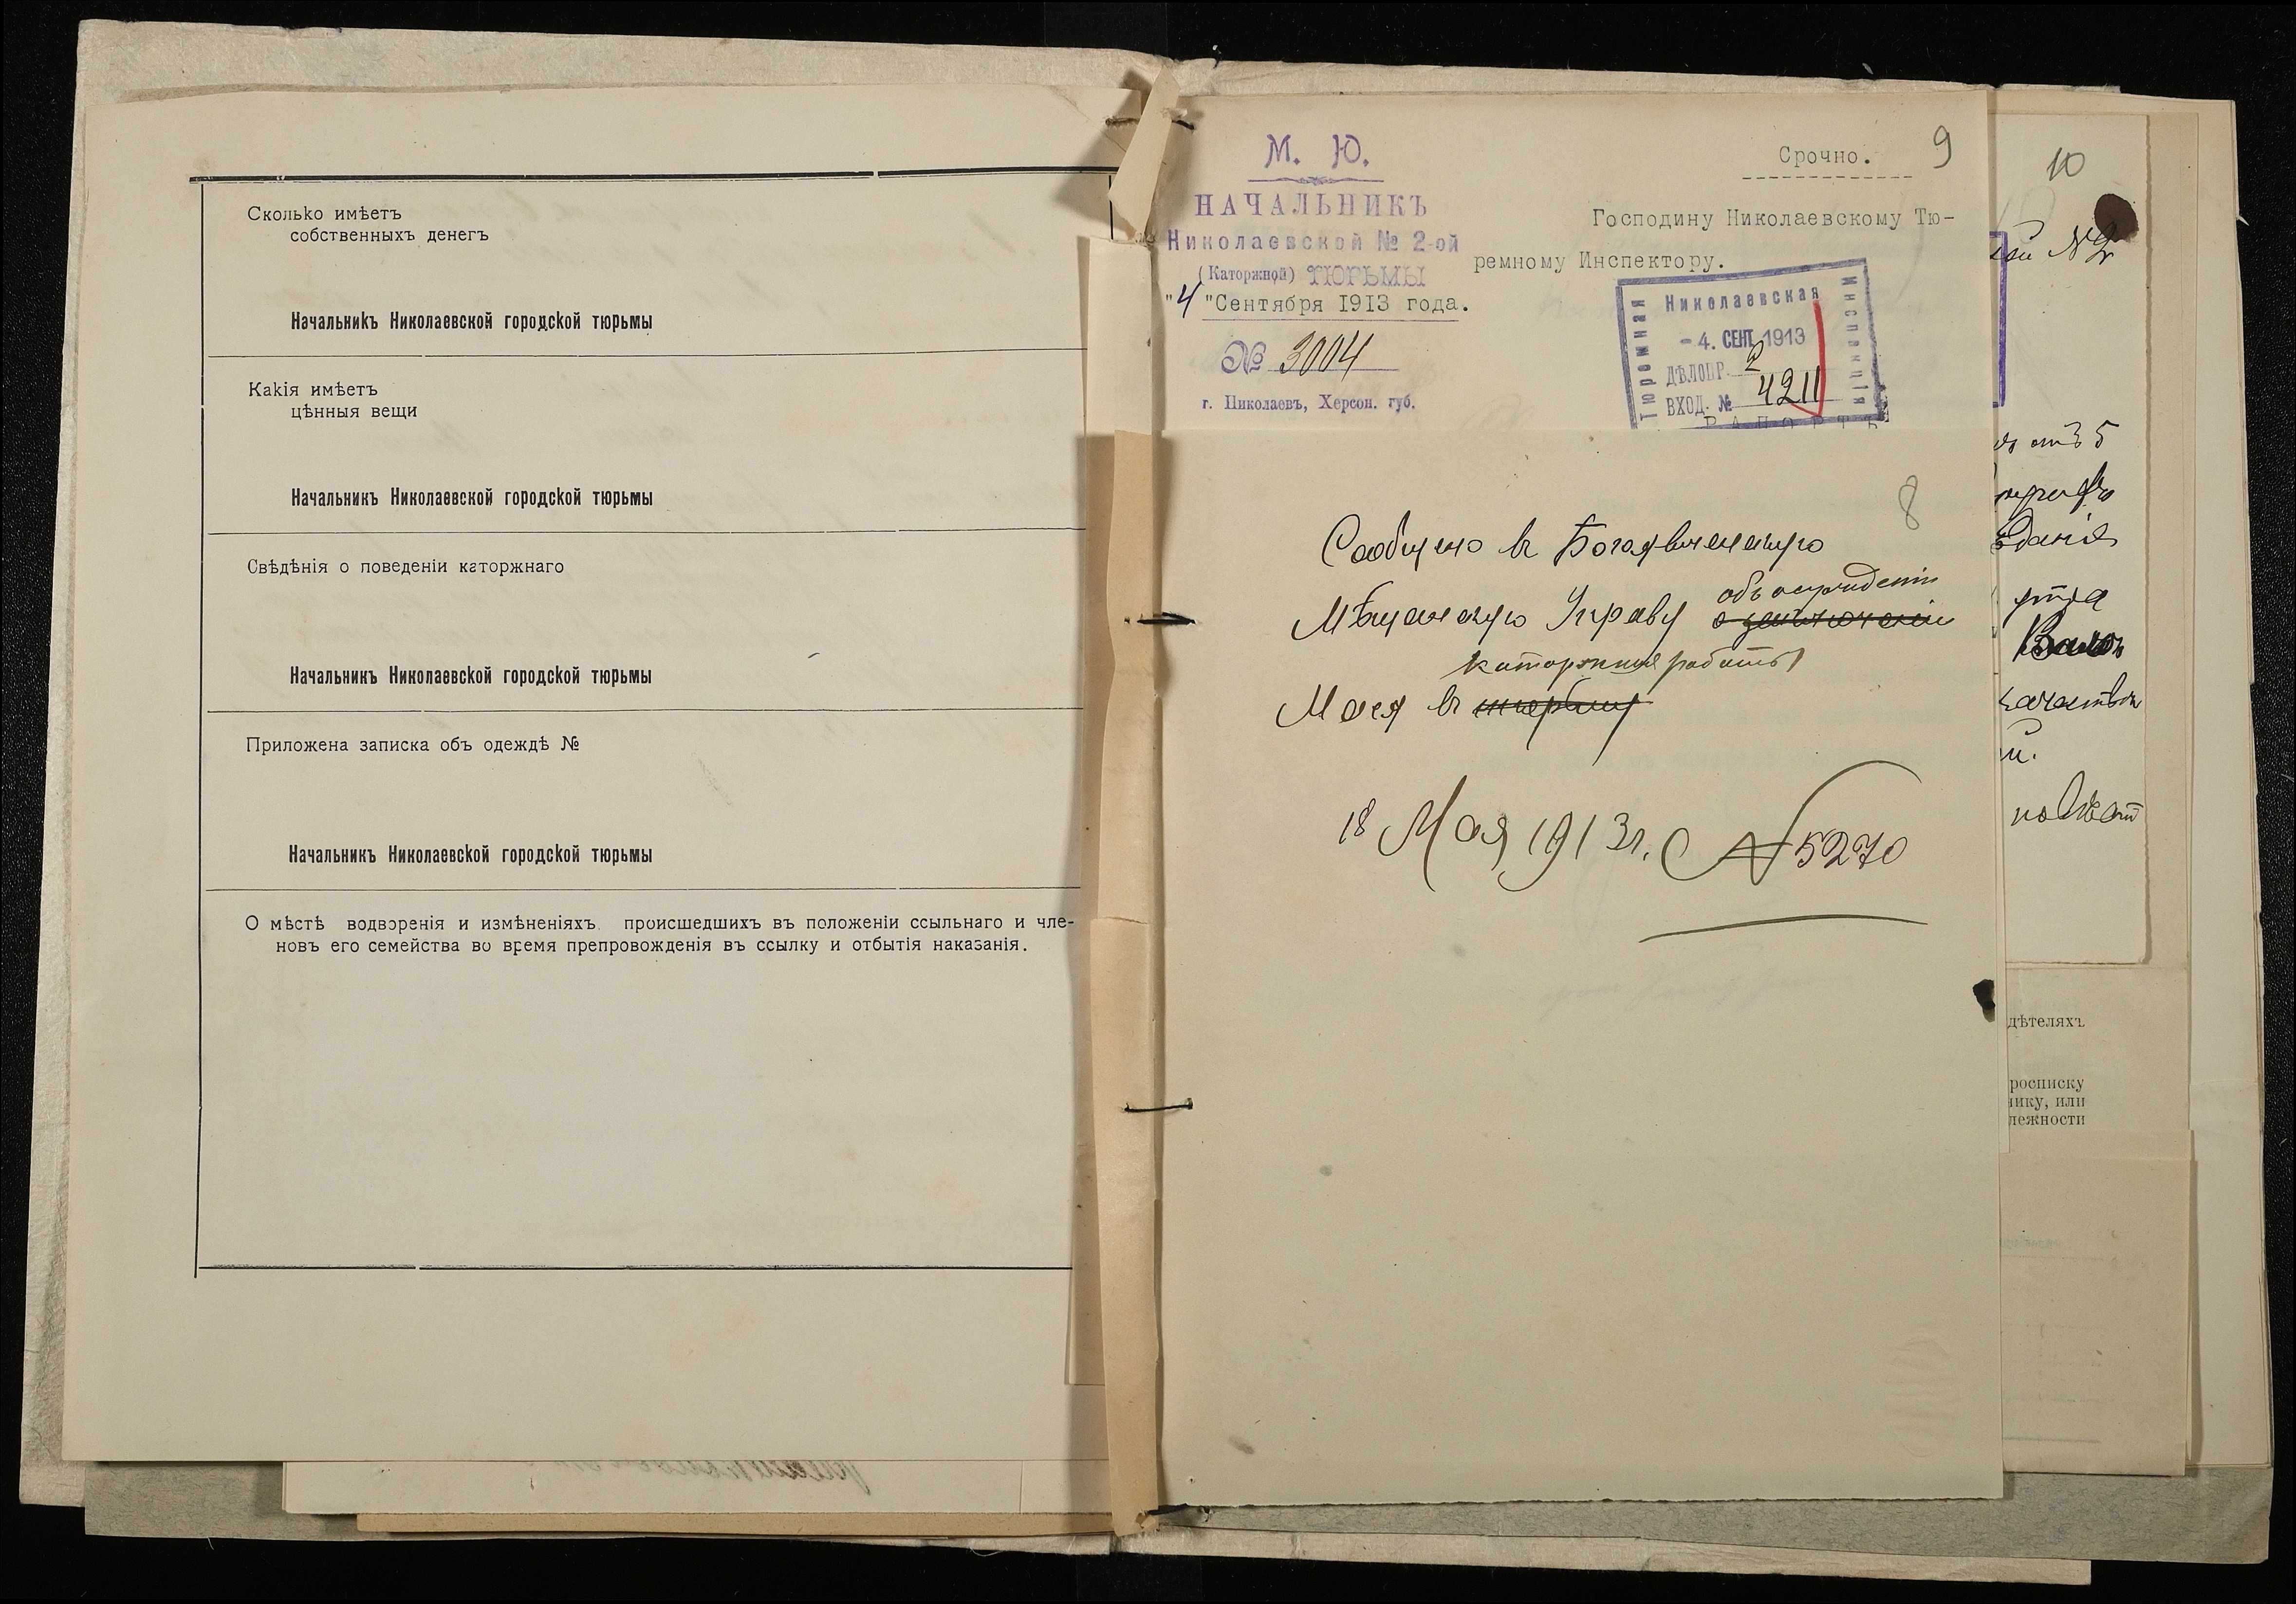 Сколько имѣетъ
собственныхъ денегъ
Начальникъ Николаевской городской тюрьмы
Какія имѣетъ
цѣнныя вещи
Начальникъ Николаевской городской тюрьмы
Свѣдѣнія о поведеніи каторжнаго
Начальникъ Николаевской городской тюрьмы
Приложена записка объ одеждѣ №
Начальникъ Николаевской городской тюрьмы
О мѣстѣ водворенія и измѣненіяхъ, происшедшихъ въ положеніи ссыльнаго и чле-
новъ его семейства во время препровожденія въ ссылку и отбытія наказанія.
М. Ю.
НАЧАЛЬНИКЪ
Николаевской № 2-ой
(Каторжной) ТЮРЬМЫ
"4"Сентября 1913 года.
№ 3004
г. Николаевъ, Херсон. губ.
Срочно.
9
Господину Николаевскому Тю-
ремному Инспектору.
Тюремная
Николаевская
Инспекція
- 4. СЕНТ. 1913
ДѢЛОПР. 2
ВХОД. № 4211
РАПОРТЪ
8
Сообщено въ Богоявленскую
объ осужденіи
Мѣщанскую Управу о заключеніи
каторжныя работы
Мося въ тюрьму
18 Мая 1913 г. № 5270
10
ой №2
отъ 5
данія
качествѣ
дѣтеляхъ
росписку
нику, или
лежности